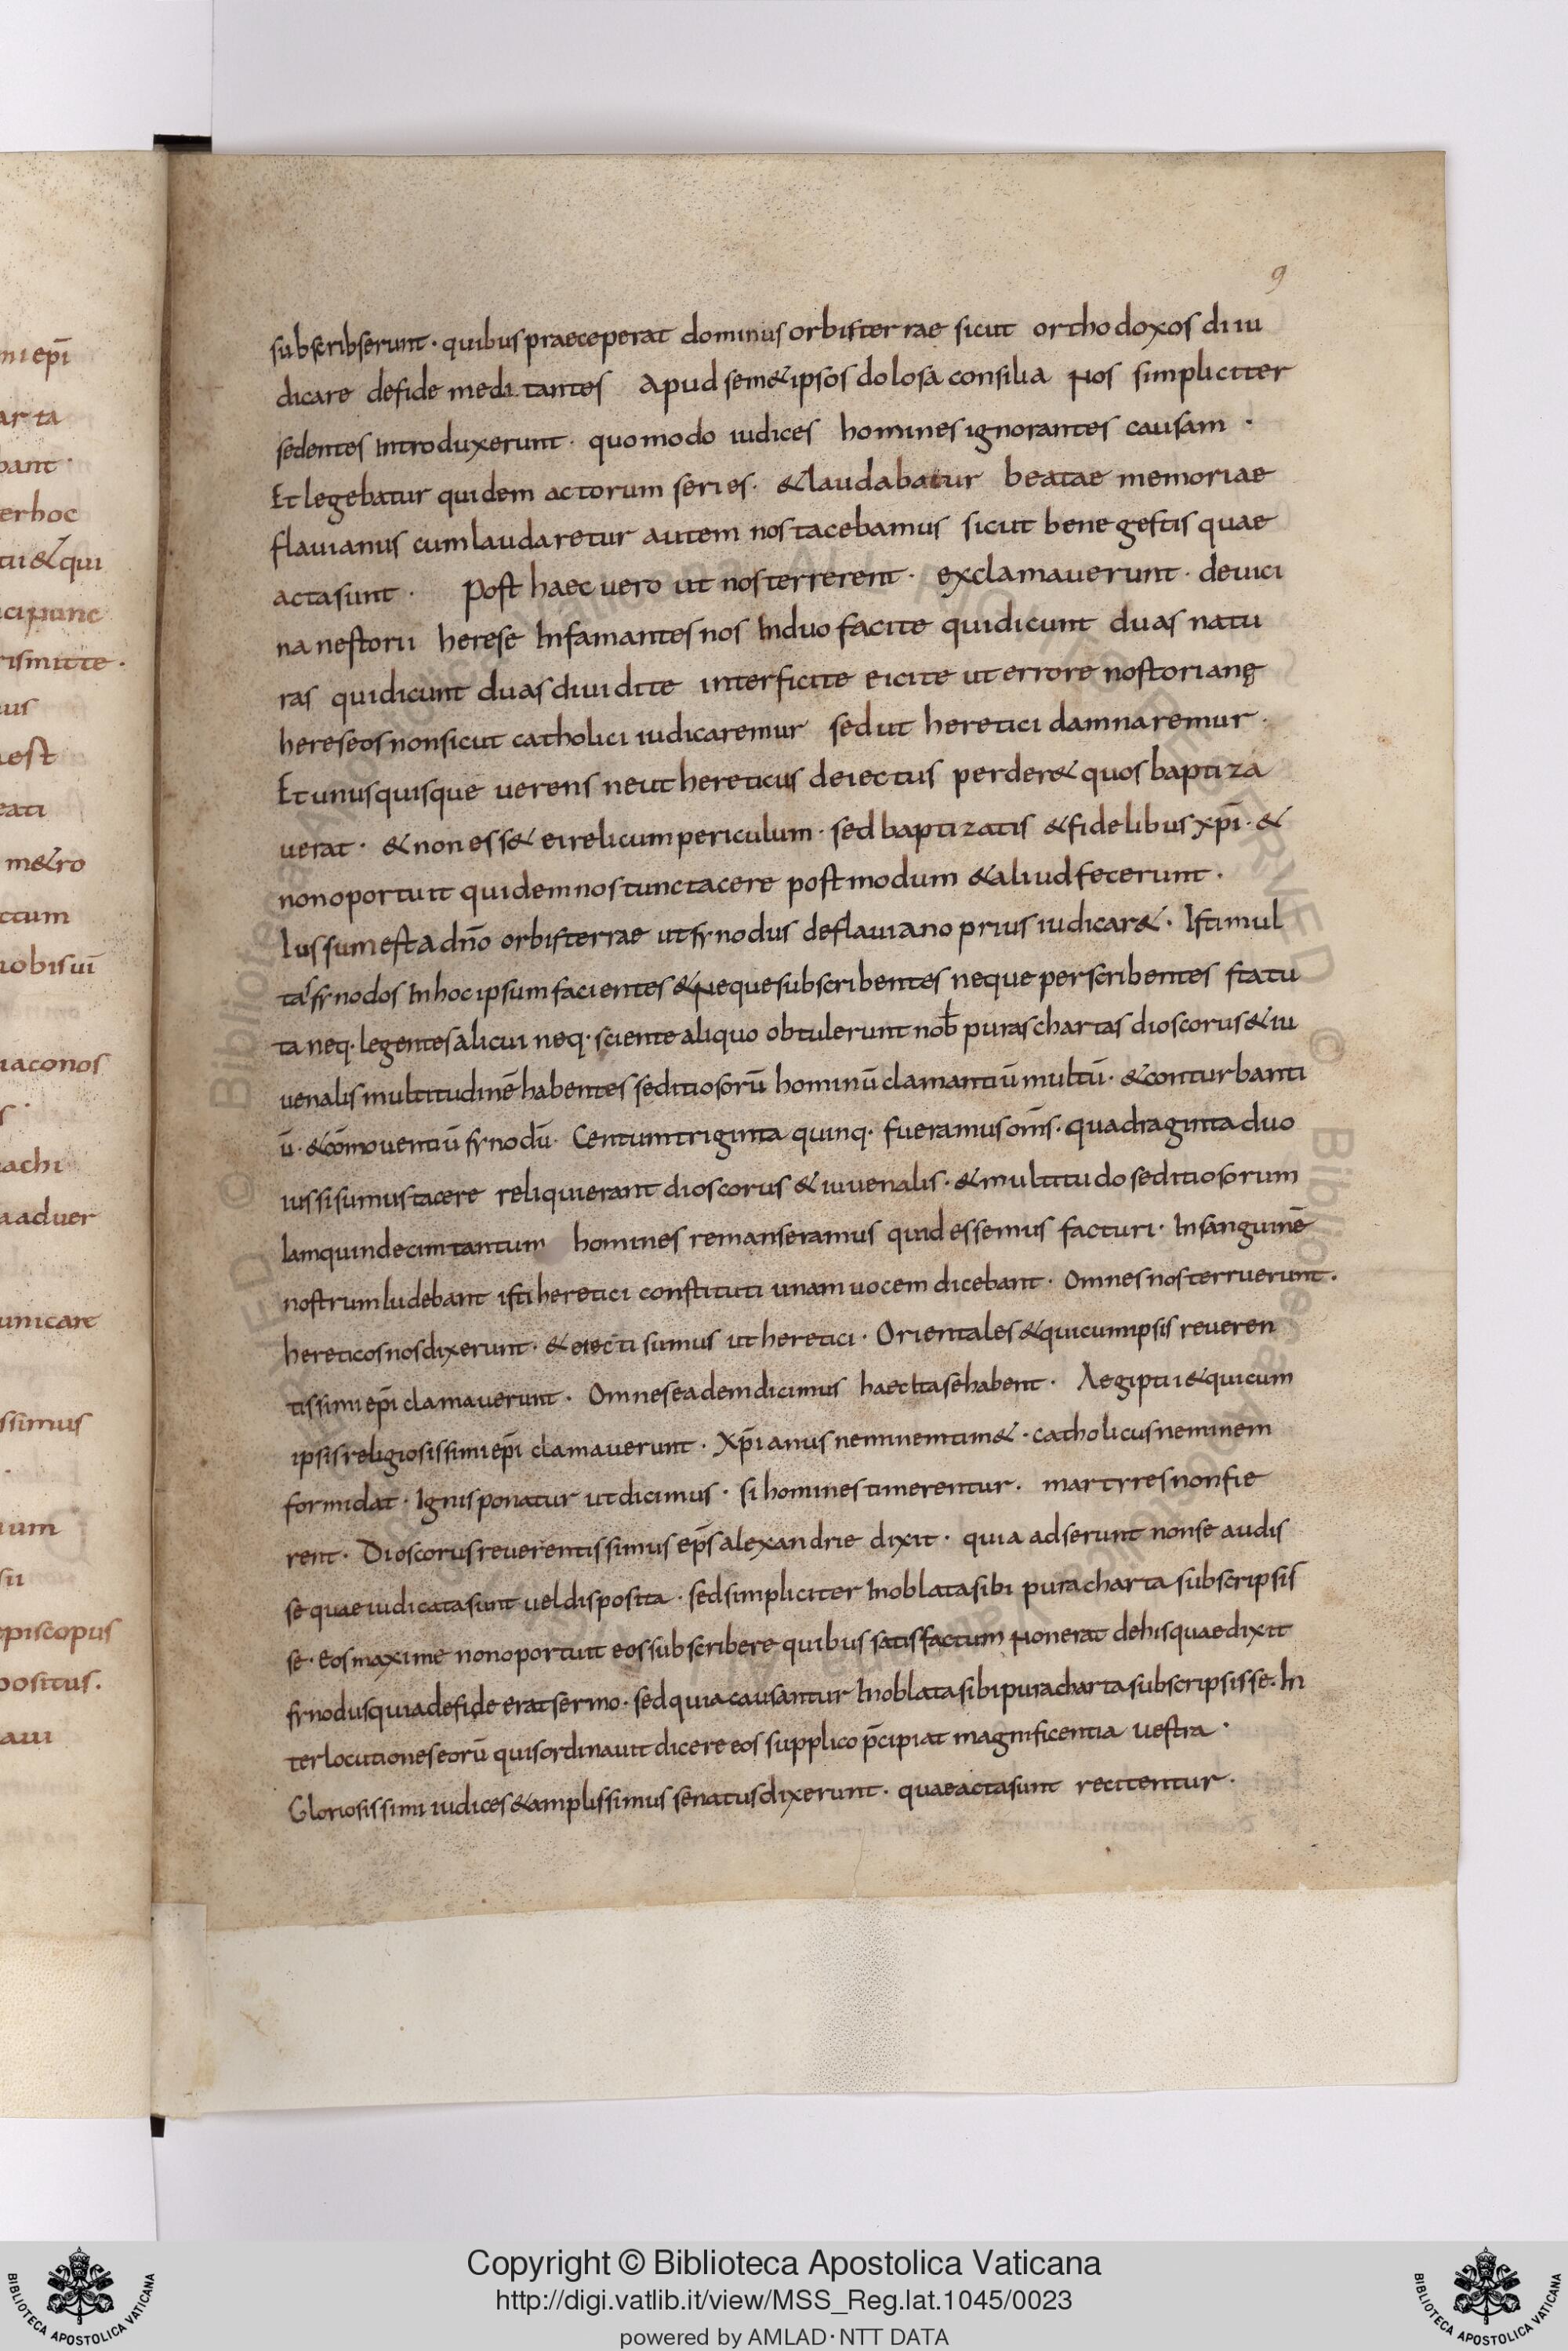 9
subscribserunt· quibus praeceperat dominus orbis terrae sicut orthodoxos diiu
dicare de fide meditantes apud sem&ipsos dolosa consilia nos simpliciter
sedentes introduxerunt· quomodo iudices homines ignorantes causam·
Et legebatur quidem actorum series· & laudabatur beatae memoriae
flauianus cum laudaretur autem nos tacebamus sicut bene gestis quae
acta sunt· Post haec uero ut nos terrerent· exclamauerunt· deuici
na nestorii herese infamantes nos induo facite qui dicunt duas natu
ras qui dicunt duas diuidite interficite eicite ut errore nostorianę
hereseos non sicut catholici iudicaremur sed ut heretici damnaremur·
Et unusquisque uerens ne ut hereticus deiectus perder& quos baptiza
uerat· & non ess& ei relicum periculum· sed baptizatis & fidelibus xp̄i· &
non oportuit quidem nos tunc tacere postmodum & aliud fecerunt·
Iussum est a dn̄o orbis terrae ut synodus de flauiano prius iudicar&· Isti mul
ta synodos in hoc ipsum facientes & neque subscribentes neque perscribentes statu
ta neq· legentes alicui neq· sciente aliquo obtulerunt nob̄ puras chartas dioscorus & iu
uenalis multitudinē habentes seditiosorū hominū clamantiū multū· & conturbanti
ū· & cōmouentiū synodū· Centum triginta quinq· fueramus om̄s· quadraginta duo
iussi sumus tacere reliqui erant dioscorus & iuuenalis· & multitudo seditiosorum
Iam quindecim tantum homines remanseramus quid essemus facturi· In sanguinē
nostrum ludebant isti heretici constituti unam uocem dicebant· Omnes nos terruerunt·
hereticos nos dixerunt· & eiecti sumus ut heretici· Orientales & qui cum ipsis reueren
tissimi ep̄i clamauerunt· Omnes eadem dicimus haec ita se habent· Aegiptii & qui cum
ipsis religiosissimi ep̄i clamauerunt· Xp̄ianus neminem tim&· catholicus neminem
formidat· Ignis ponatur ut dicimus· si homines timerentur· martyres non fie
rent· Dioscorus reuerentissimus ep̄s alexandrie dixit· quia adserunt non se audis
se quae iudicata sunt uel disposita· sed simpliciter in oblata sibi pura charta subscripsis
se· Eos maxime non oportuit eos subscribere quibus satisfactum non erat de his quae dixit
synodus quia de fide erat sermo· sed quia causantur in oblata sibi pura charta subscripsisse· In
terlocutiones eorū quis ordinauit dicere eos supplico p̄cipiat magnificentia uestra·
Gloriosissimi iudices & amplissimus senatus dixerunt· quae acta sunt recitentur·
mi ep̄i
ar ta
bant·
er hoc
tii & qui
ci punc
rismitte·
us
est
eati
m&ro
ctum
nobis ui
iaconos
s·
achi
a aduer
unicare
ssimus
um
su
episcopus
positus·
aui
Copyright © Biblioteca Apostolica Vaticana
http://digi.vatlib.it/view/MSS_Reg.lat.1045/0023
powered by AMLAD·NTT DATA
BIBLIOTECA APOSTOLICA VATICANA
BIBLIOTECA APOSTOLICA VATICANA